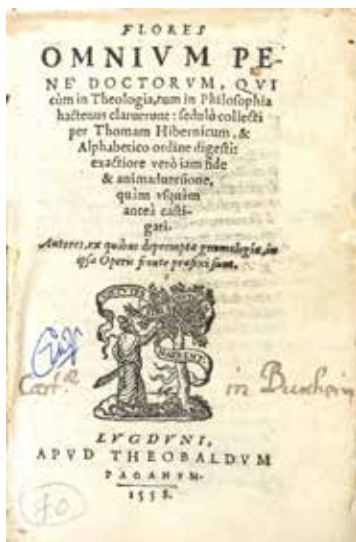 FLORES
OMNIVM PE-
NE' DOCTORVM, QVI
cùm in Theologia, tum in Philosophia
hactenus claruerunt: sedulò collecti
per Thomam Hibernicum, &
Alphabetico ordine digesti:
exactiore verò iam fide
& animaduersione,
quàm vsquàm
anteà casti-
gati.
Autores, ex quibus deprompta gnomologia, in
ipsa Operis fronte præfixi sunt.
Cart.
in Buxheim
LVGDVNI,
APVD THEOBALDVM
PAGANVM.
1558.
70